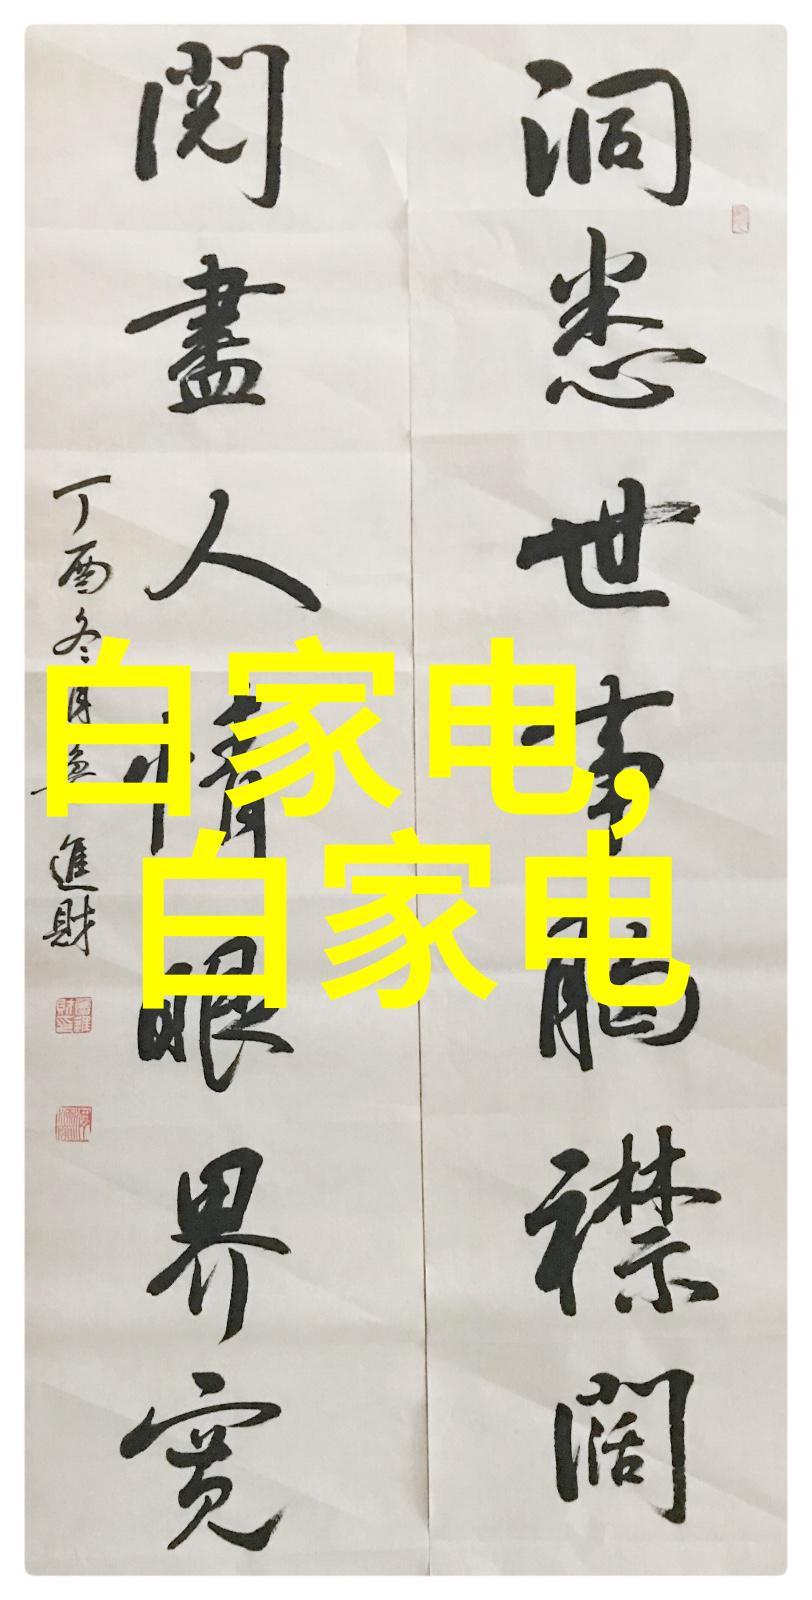 洞悉世事胸襟闊
閱盡人情眼界寬
丁酉冬月 進財
白家电,
白家电